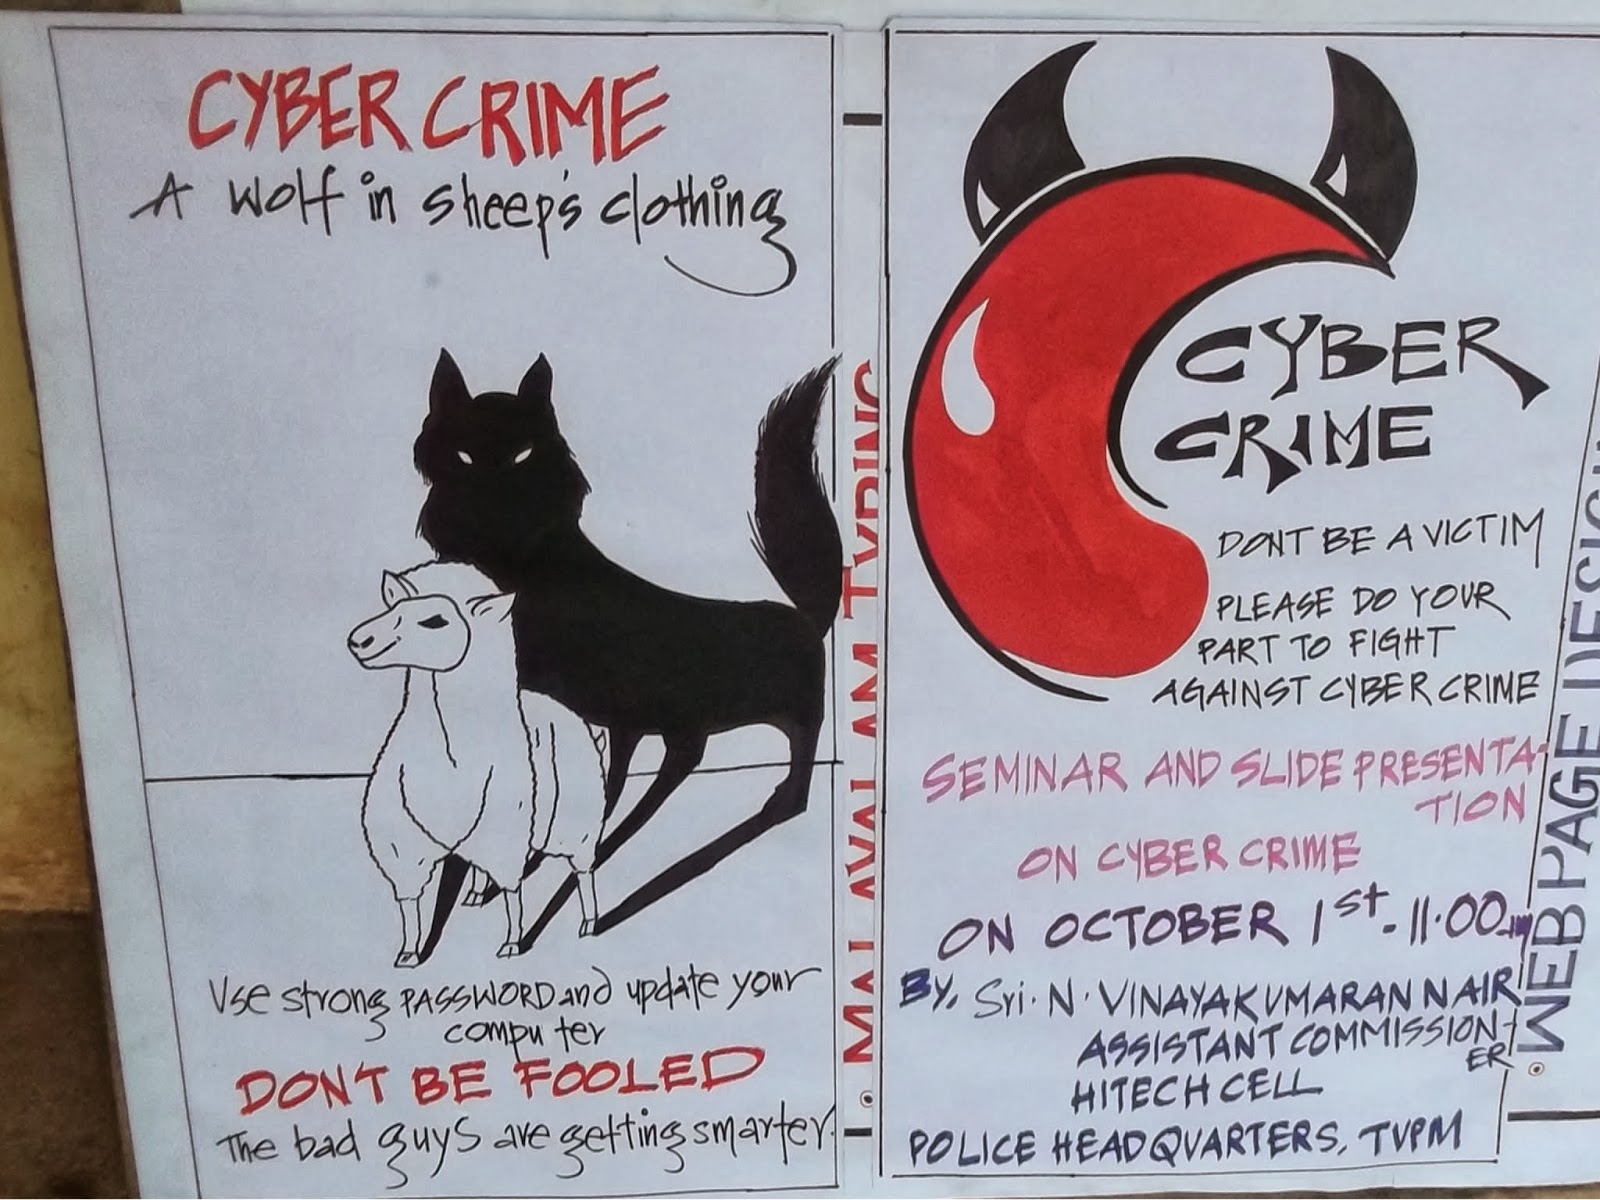 CYBER CRIME
A wolf in sheep's clothing
Use strong PASSWORD and update your
computer
DONT BE FOOLED
The bad guys are getting smarter.
MALAYALAM TYPING
CYBER
CRIME
DONT BE A VICTIM
PLEASE DO YOUR
PART TO FIGHT
AGAINST CYBER CRIME
SEMINAR AND SLIDE PRESENTA-
TION
ON CYBER CRIME
ON OCTOBER 1st - 11.00am
BY. Sri. N. VINAYAKUMARAN NAIR
ASSISTANT COMMISSION-
ER
HITECH CELL
POLICE HEADQUARTERS, TVPM
WEB PAGE DESIGN